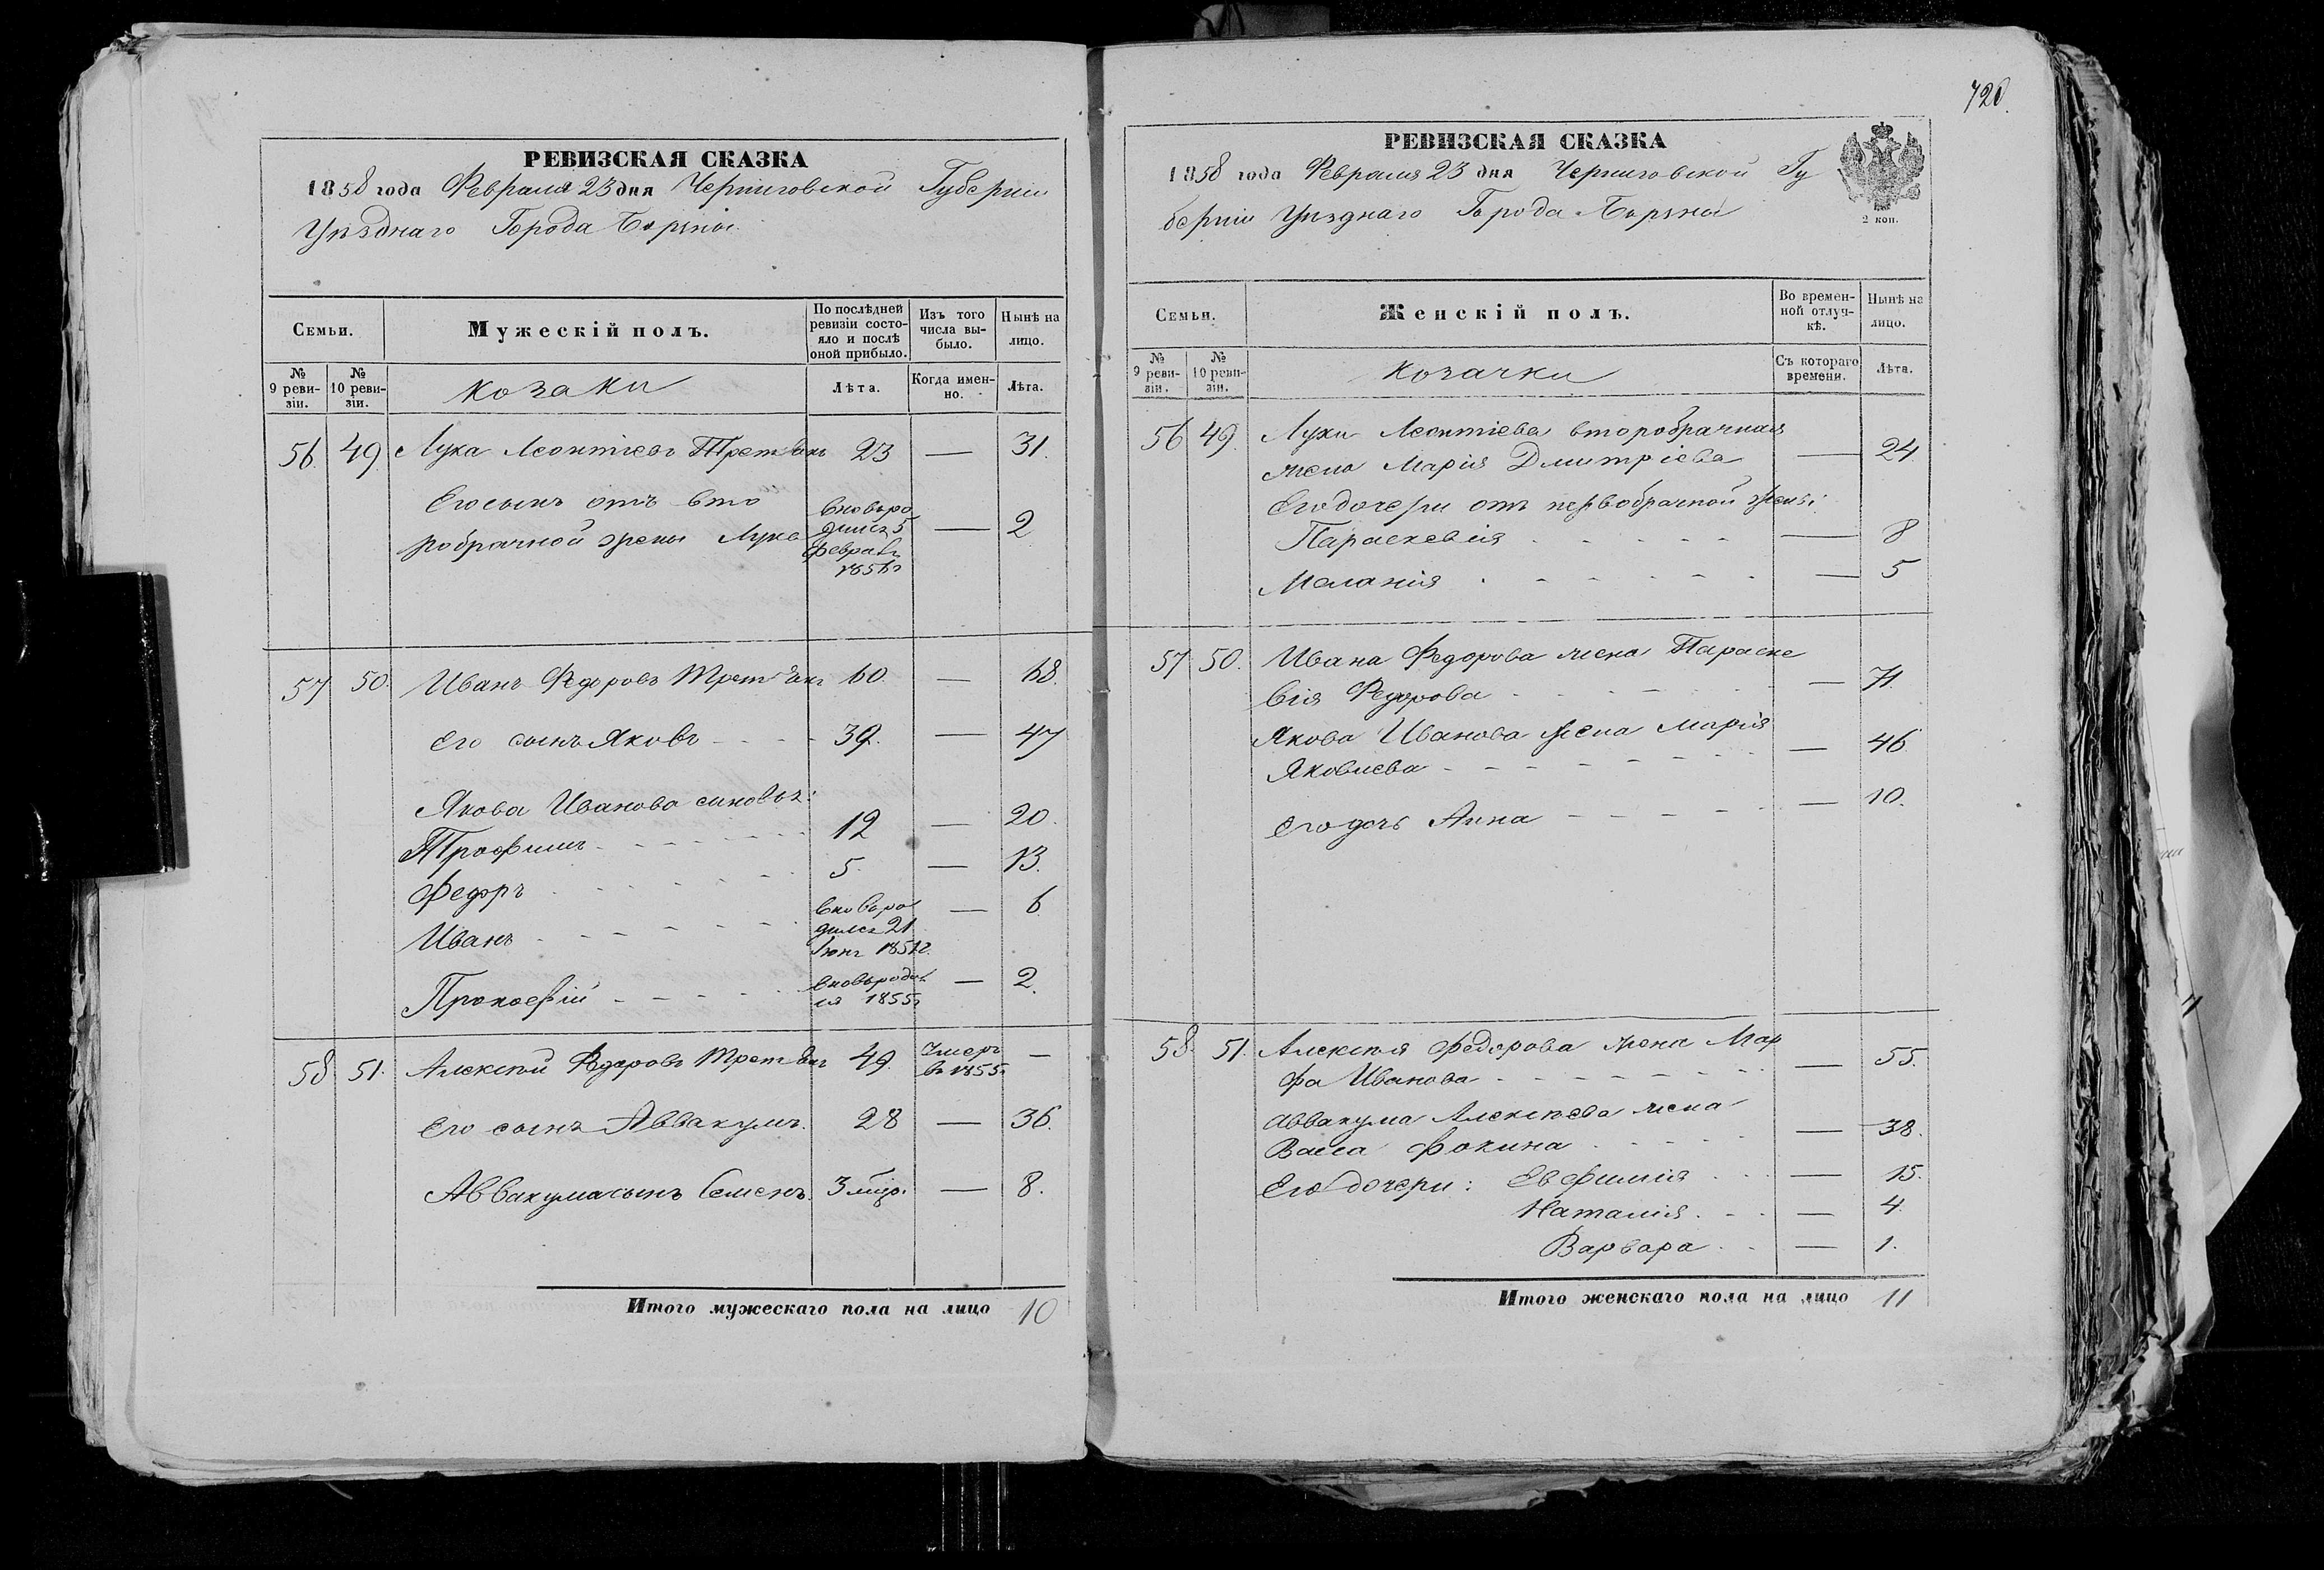 728.
РЕВИЗСКАЯ СКАЗКА
1858 года Февраля 23 дня Черниговской Губерніи
Уѣзднаго Города Борзны.
Семьи.
Мужескій полъ.
По послѣдней ревизіи состояло и послѣ оной прибыло.
Изъ того числа выбыло.
Нынѣ на лицо.
№ 9 ревизіи.
№ 10 ревизіи.
Козаки
Лѣта.
Когда именно.
Лѣта.
56. 49. Лука Леонтіевъ Третьякъ 23 — 31.
Его сынъ отъ вто
робрачной жены Лука
вновьро
дился 5
февраля
— 2
57 50. Иванъ Федоровъ Третьякъ 60. — 68.
Его сынъ Яковъ - - - 39. — 47
Якова Иванова сыновья:
Трофимъ - - - - - - 12 — 20.
Федоръ - - - - - - 5. — 13.
Иванъ - - - - - -
вновьро
дился 21
— 6
Прокофій - - - - -
вновьродил
ся 1855г
— 2.
58 51. Алексѣй Федоровъ Третьякъ 49.
Умеръ
въ 1855г
—
Его сынъ Аввакумъ. 28 — 36.
Аввакума сынъ Семенъ. 3 мѣся. — 8.
Итого мужескаго пола на лицо 10
РЕВИЗСКАЯ СКАЗКА
1858 года Февраля 23 дня Черниговской Гу
берніи Уѣзднаго Города Борзны
2 коп.
Семьи.
Женскій полъ.
Во временной отлучкѣ.
Нынѣ на лицо.
№ 9 ревизіи.
№ 10 ревизіи.
Козачки
Съ котораго времени.
Лѣта.
56 49. Луки Леонтіева второбрачная
жена Марія Дмитріева — 24
Его дочери отъ первобрачной жены:
Параскевія - - - - - — 8
Меланія - - - - - - — 5
57 50. Ивана Федорова жена Параске
вія Федорова - - - - - — 71.
Якова Иванова жена Марія
Яковлева - - - - - - - — 46
Его дочь Анна - - - - - — 10.
58. 51. Алексѣя Федорова жена Мар
фа Иванова - - - - - - - — 55.
Аввакума Алексѣева жена
Васса Фокина - - - - — 38.
Его дочери: Евфимія - - - — 15.
Наталія - - - — 4.
Варвара - - — 1.
Итого женскаго пола на лицо 11